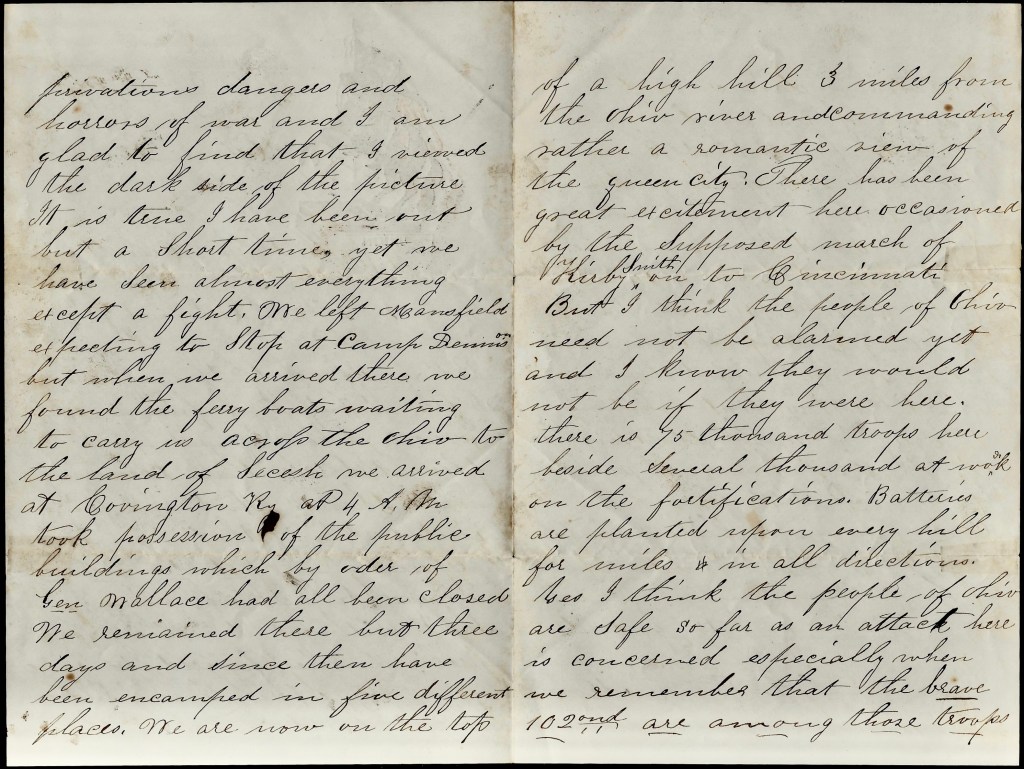 privations dangers and
horrors of war and I am
glad to find that I viewed
the dark side of the picture
It is true I have been out
but a short time, yet we
have seen almost everything
except a fight. We left Mansfield
expecting to stop at Camp Dennison
but when we arrived there we
found the ferry boats waiting
to carry us across the Ohio to
the land of Secesh we arrived
at Covington Ky at 4, A, M
took possession of the public
buildings which by oder of
Gen Wallace had all been closed
We remained there but three
days and since then have
been encamped in five different
places. We are now on the top
of a high hill 3 miles from
the Ohio river and commanding
rather a romantic view of
the queen city. There has been
great excitement here occasioned
by the supposed march of
Kirby Smith on to Cincinnati
But I think the people of Ohio
need not be alarmed yet
and I know they would
not be if they were here.
there is 75 thousand troops here
beside several thousand at work
on the fortifications. Batteries
are planted upon every hill
for miles & in all directions.
Yes I think the people of Ohio
are safe so far as an attack here
is concerned especially when
we remember that the brave
102ond are among those troops